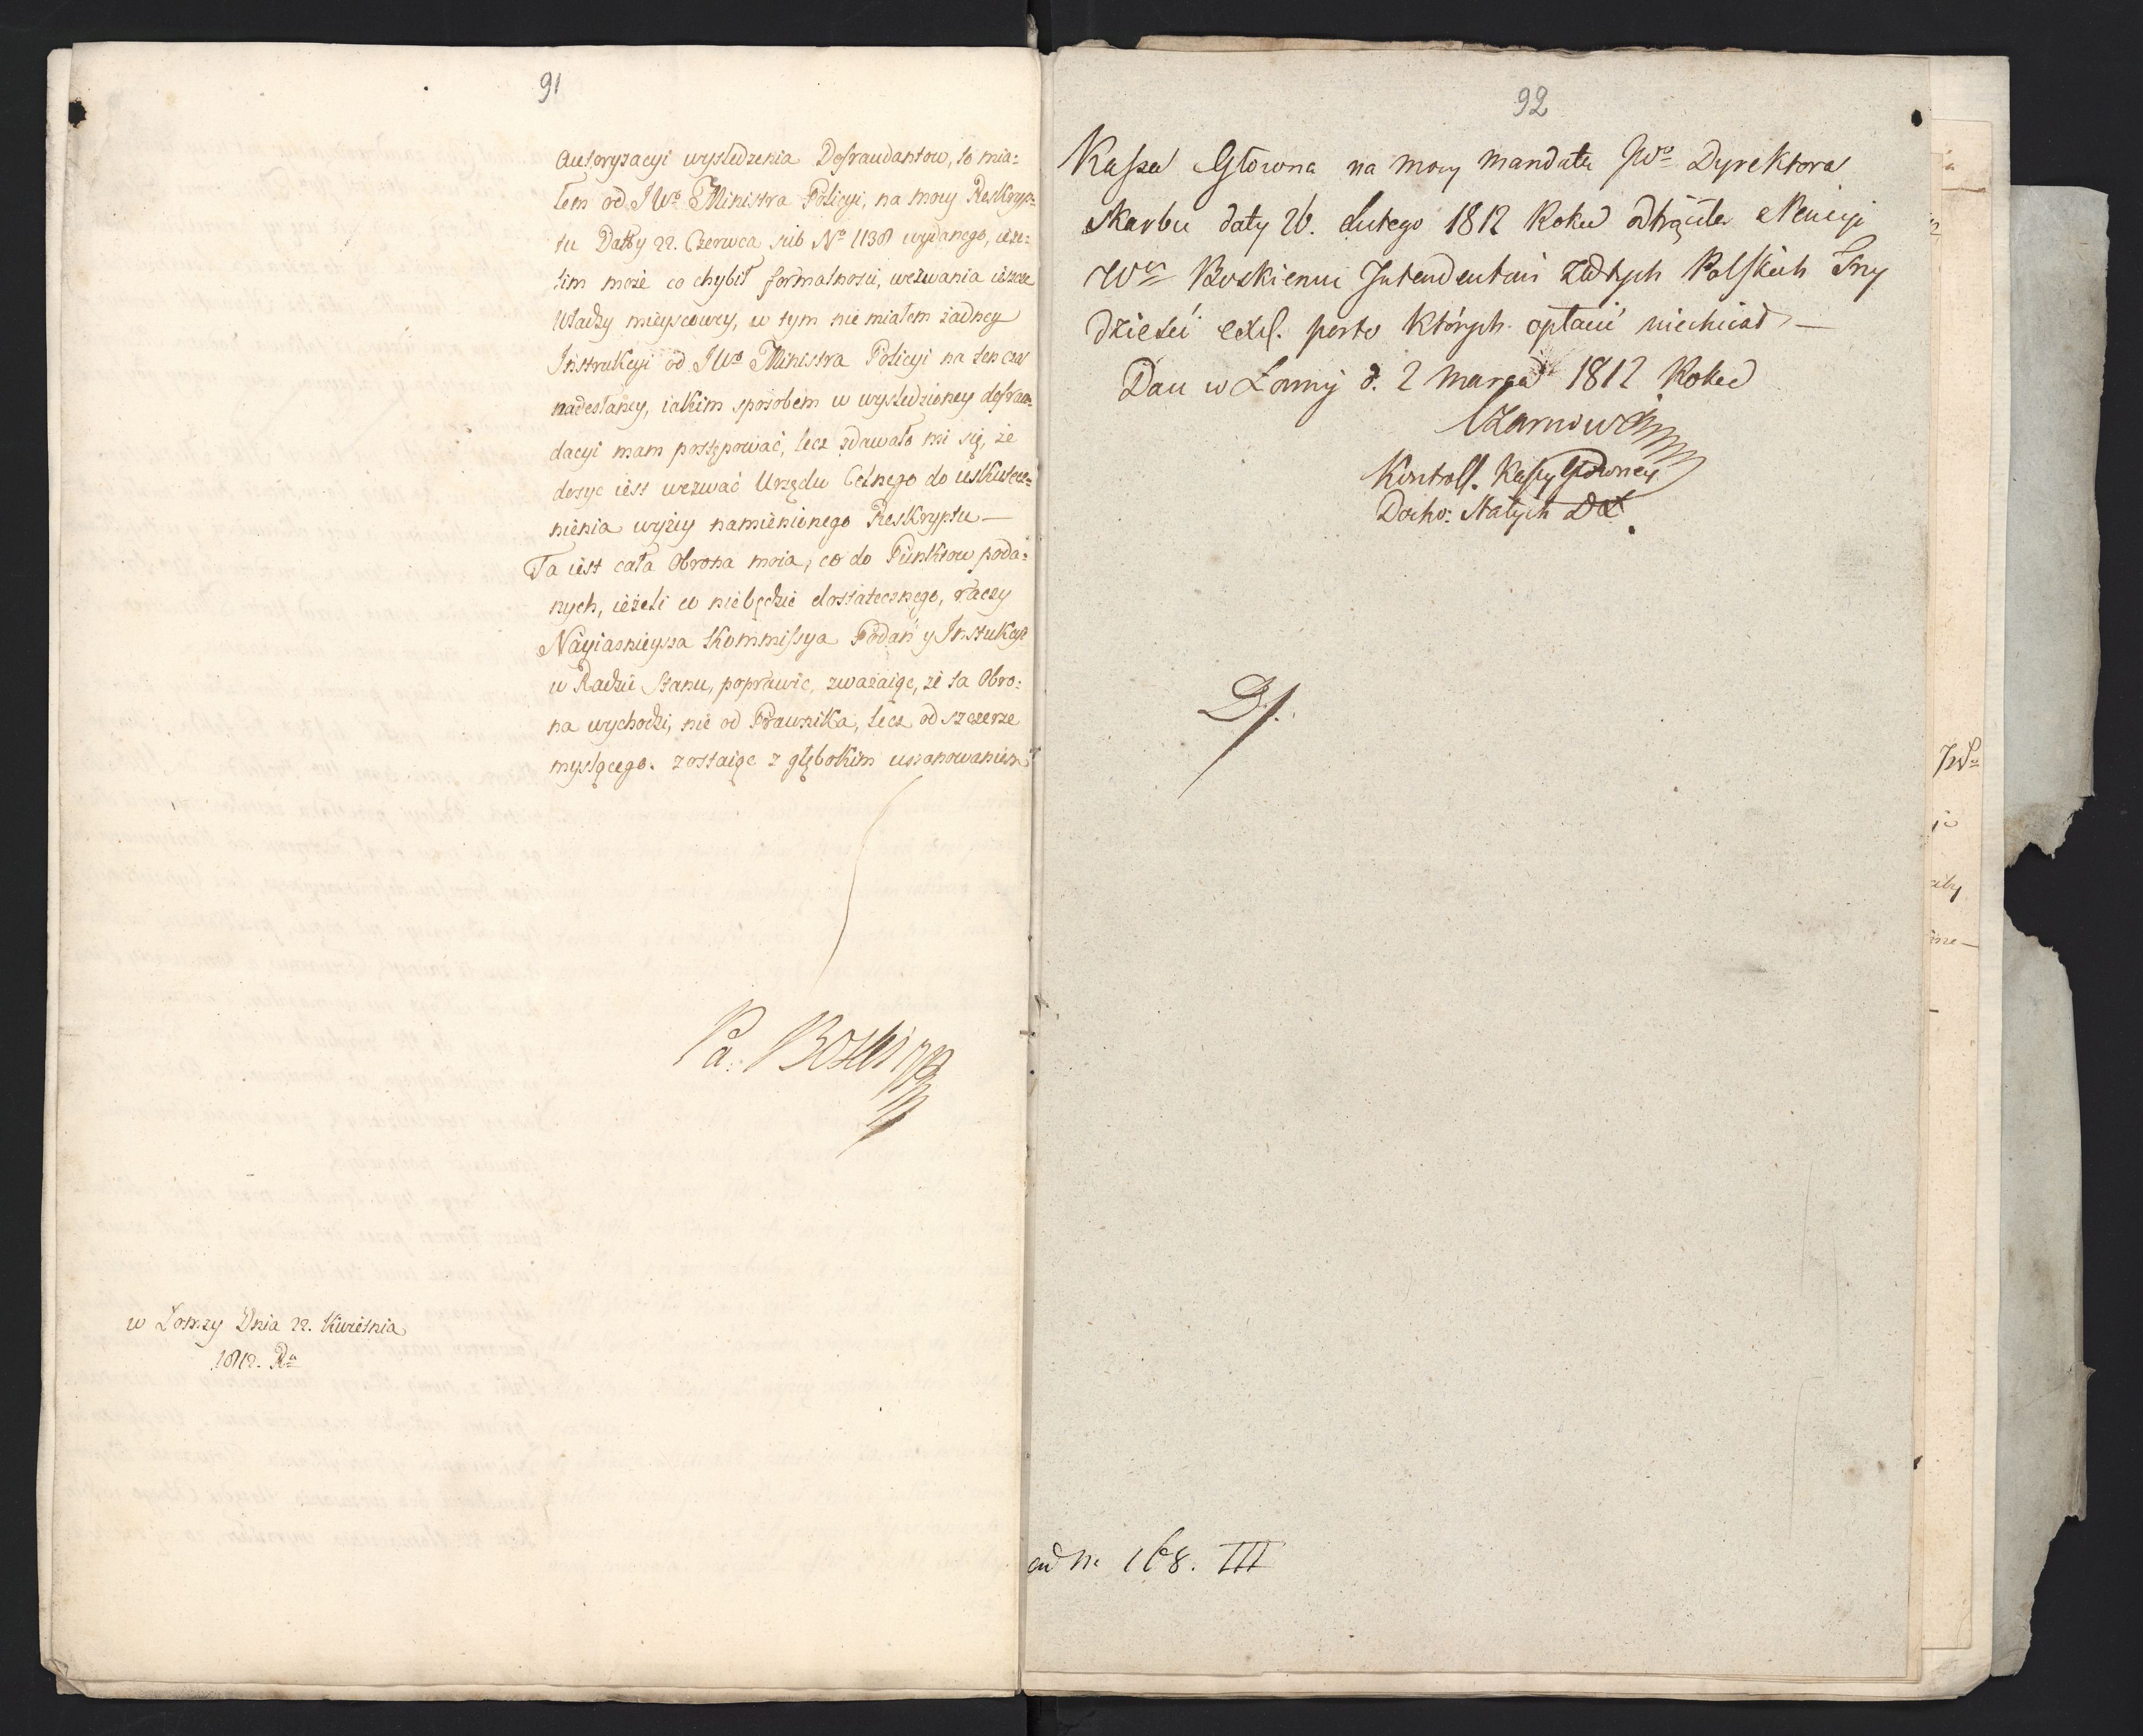 91
autoryzacyi wysledzenia Defraudantow, to mia=
łem od JWo Ministra Policyi, na mocy Reskryp=
tu Datty 22. Czerwca sub No 1138 wydanego, ieże=
lim może co chybił formalnosci, wezwania ieszcze
Władzy mieyscowey, w tym nie miałem żadney
Instrukcyi od JWo Ministra Policyi na ten czas
nadesłaney, iakim sposobem w wysledzioney defrau=
dacyi mam postępować, lecz zdawało mi się, że
dosyc iest wezwać Urzędu Celnego do uskutecz=
nienia wyżey namienionego Reskryptu —
Ta iest cała Obrona moia, co do Punktow poda=
nych, ieżeli co niebędzie dostatecznego, raczy
Nayiasnieysza Kommissya Podań y Instukcyi
w Radzie Stanu, poprawic, zważaiąc, że ta Obro=
na wychodzi, nie od Prawnika, lecz od szczerze
myslącego. zostaiąc z głębokim uszanowaniem
Pa. Boski
w Łomzy Dnia 22. Kwietnia
1812. Ra
92
Kassa Głowna na mocy mandatu JWo Dyrektora
Skarbu daty 26. Lutego 1812 Roku odtrąciła z Pensyi
Wu Boskiemu Intendentowi Złotych Polskich Trzy
dzieści excl. porto których opłacić niechciał —
Dan w Łomży d. 2 Marca 1812 Roku
Czarnowski
Kontroll. Kassy Głowney
Docho: Stałych DŁ
ad N. 168. III
JWo